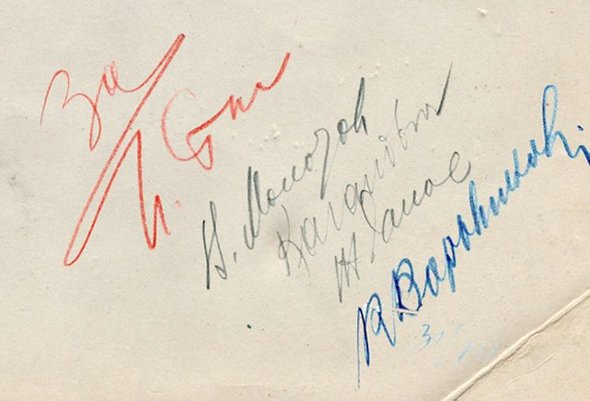 За
И. Ст
В. Молотов
Каганович
Жданов
К Ворошилов.